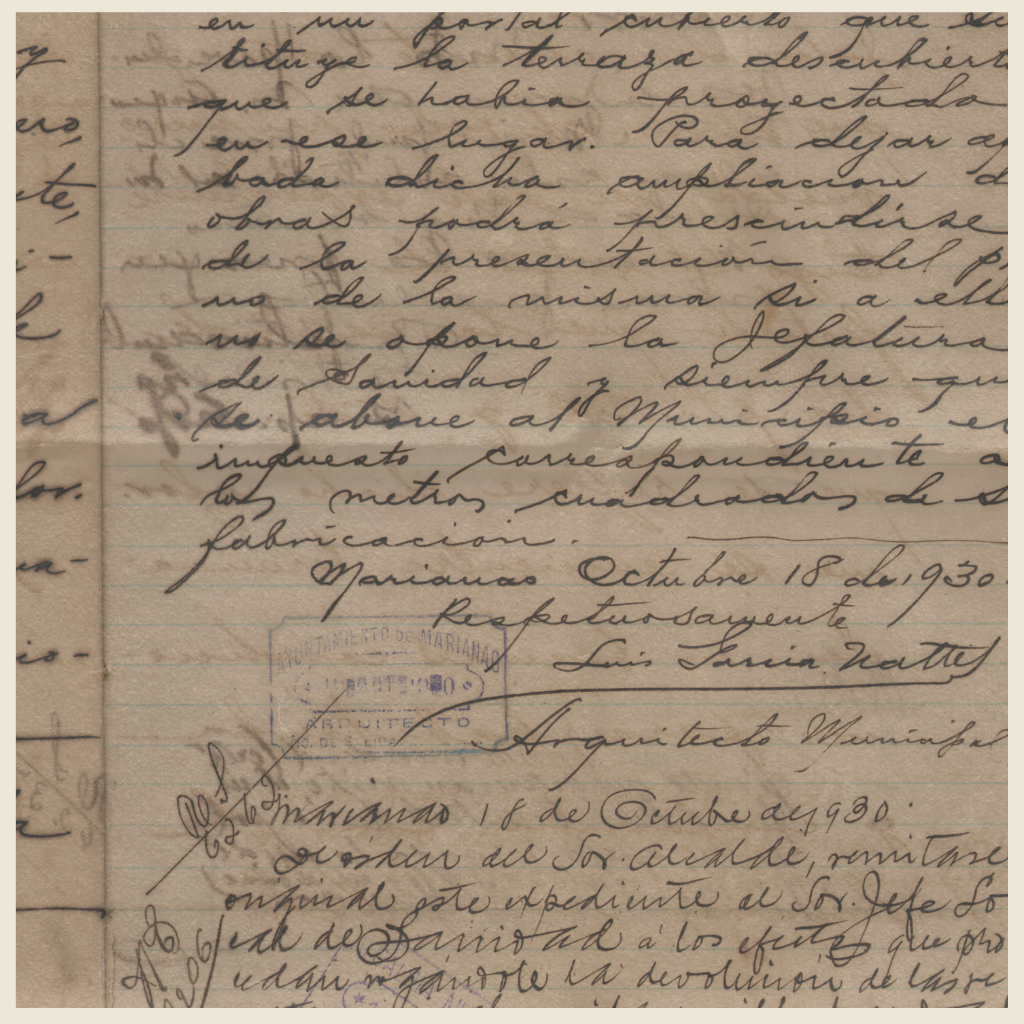 y
ero,
te,
i-
a
lor.
ua-
io-
en un portal cubierto que su
tituye la terraza descubierta
que se habia proyectado
en ese lugar. Para dejar ap
bada dicha ampliacion d
obras podrá prescindirse
de la presentación del p
no de la misma si a ell
no se opone la Jefatura
de Sanidad y siempre qu
se abone al Municipio e
impuesto correspondiente a
los metros cuadrados de s
fabricacion.
Marianao Octubre 18 de 1930.
Respetuosamente
Luis Garcia Nattes
Arquitecto Municipal
AYUNTAMIENTO DE MARIANAO
ARQUITECTO
Marianao 18 de Octubre de 1930.
De orden del Sor. Alcalde, remitase
original este expediente al Sor. Jefe Lo
cal de Sanidad á los efectos que pro
cedan rogándole la devolución de las